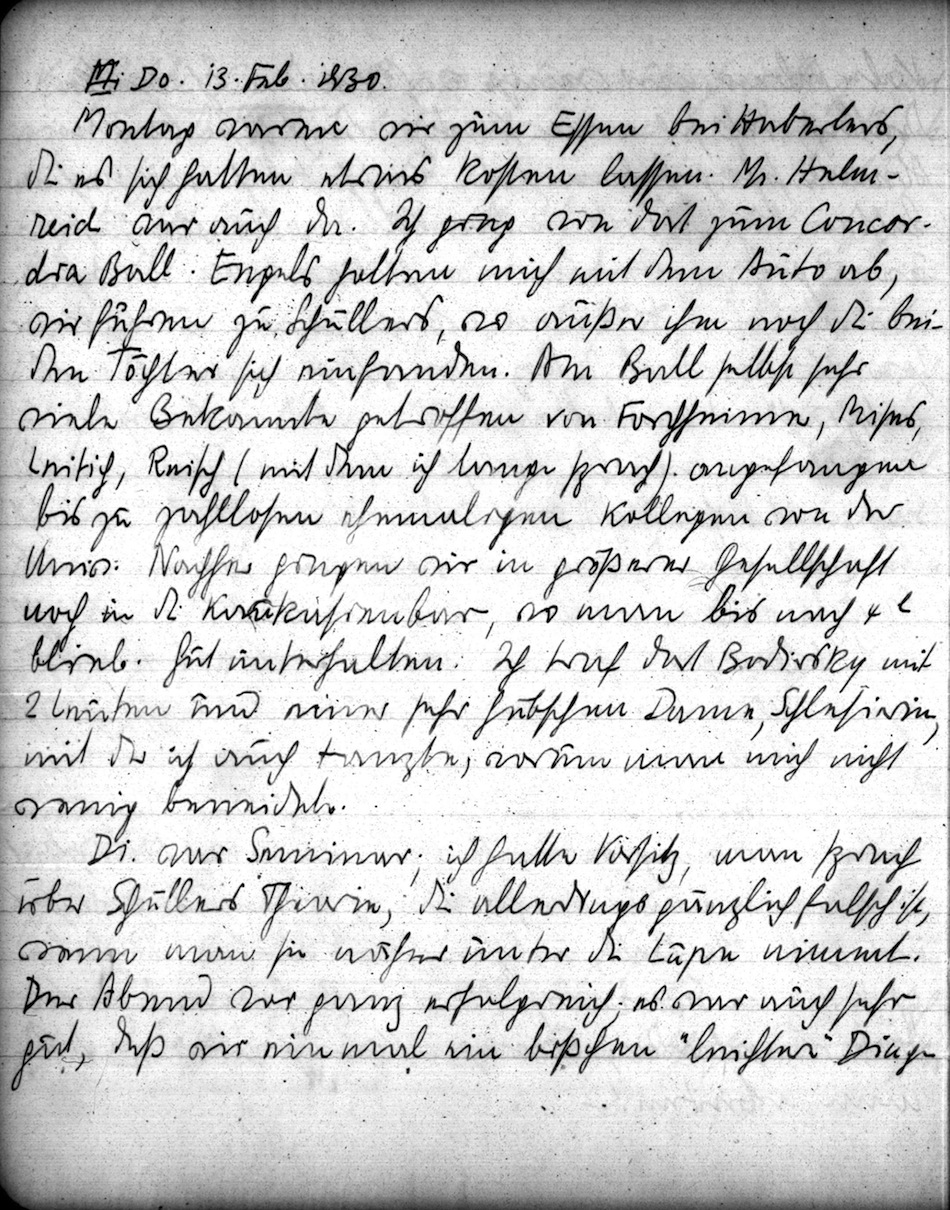 Do. 13. Feb. 1930.
Montag waren wir zum Essen bei Haberlers,
die es sich hatten etwas kosten lassen. Mr. Helm-
reich war auch da. Ich ging von dort zum Concor-
dia Ball. Engels holten mich mit dem Auto ab,
wir fuhren zu Schüllers, wo außer ihm noch die bei-
den Töchter sich einfanden. Am Ball selbst sehr
viele Bekannte getroffen von Forchheimer, Mises,
Leitich, Reisch (mit dem ich lange sprach). angefangen
bis zu zahllosen ehemaligen Kollegen von der
Univ. Nachher gingen wir in größerer Gesellschaft
noch in die Kaukasienbar, wo man bis nach 4 h
blieb. Gut unterhalten. Ich traf dort Bodirsky mit
2 Leuten und einer sehr hübschen Dame, Schlesierin,
mit der ich auch tanzte, worum man mich nicht
wenig beneidete.
Di. war Seminar; ich hatte Vorsitz, man sprach
über Schüllers Theorie, die allerdings gänzlich falsch ist,
wenn man sie näher unter die Lupe nimmt.
Der Abend war ganz erfolgreich; es war auch sehr
gut, daß wir einmal ein bißchen "leichtere" Dinge